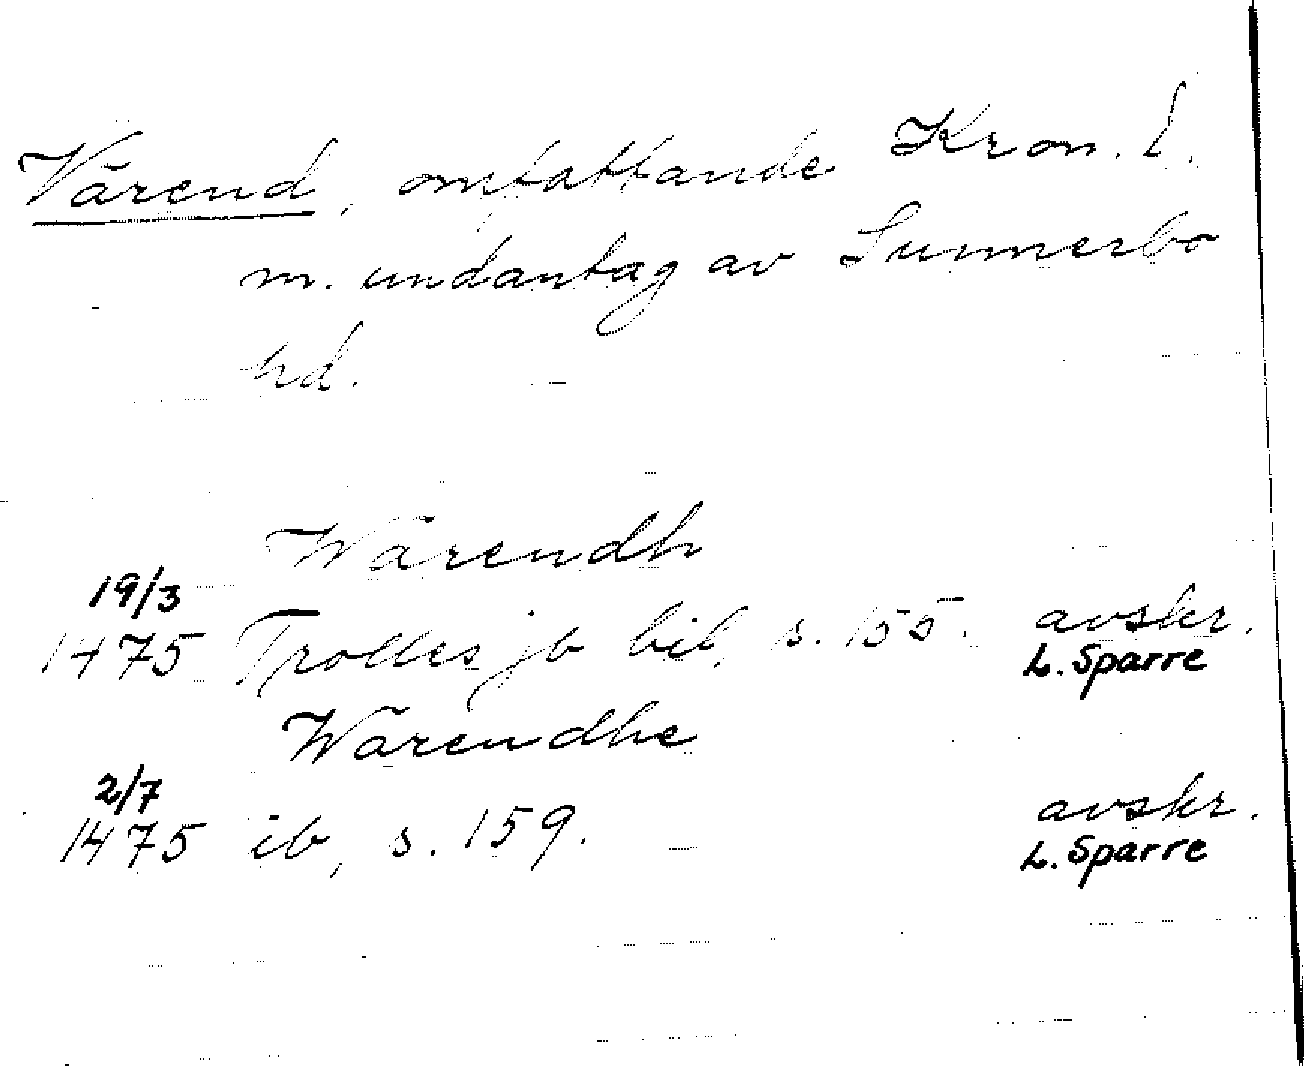 Värend, omfattande Kron. l.
m. undantag av Sunnerbo
hd.
Wärendh
19/3
1475 Trolles jb bil, s. 155. avskr.
L. Sparre
Wärendhe
2/7
1475 ib, s. 159. avskr.
L. Sparre